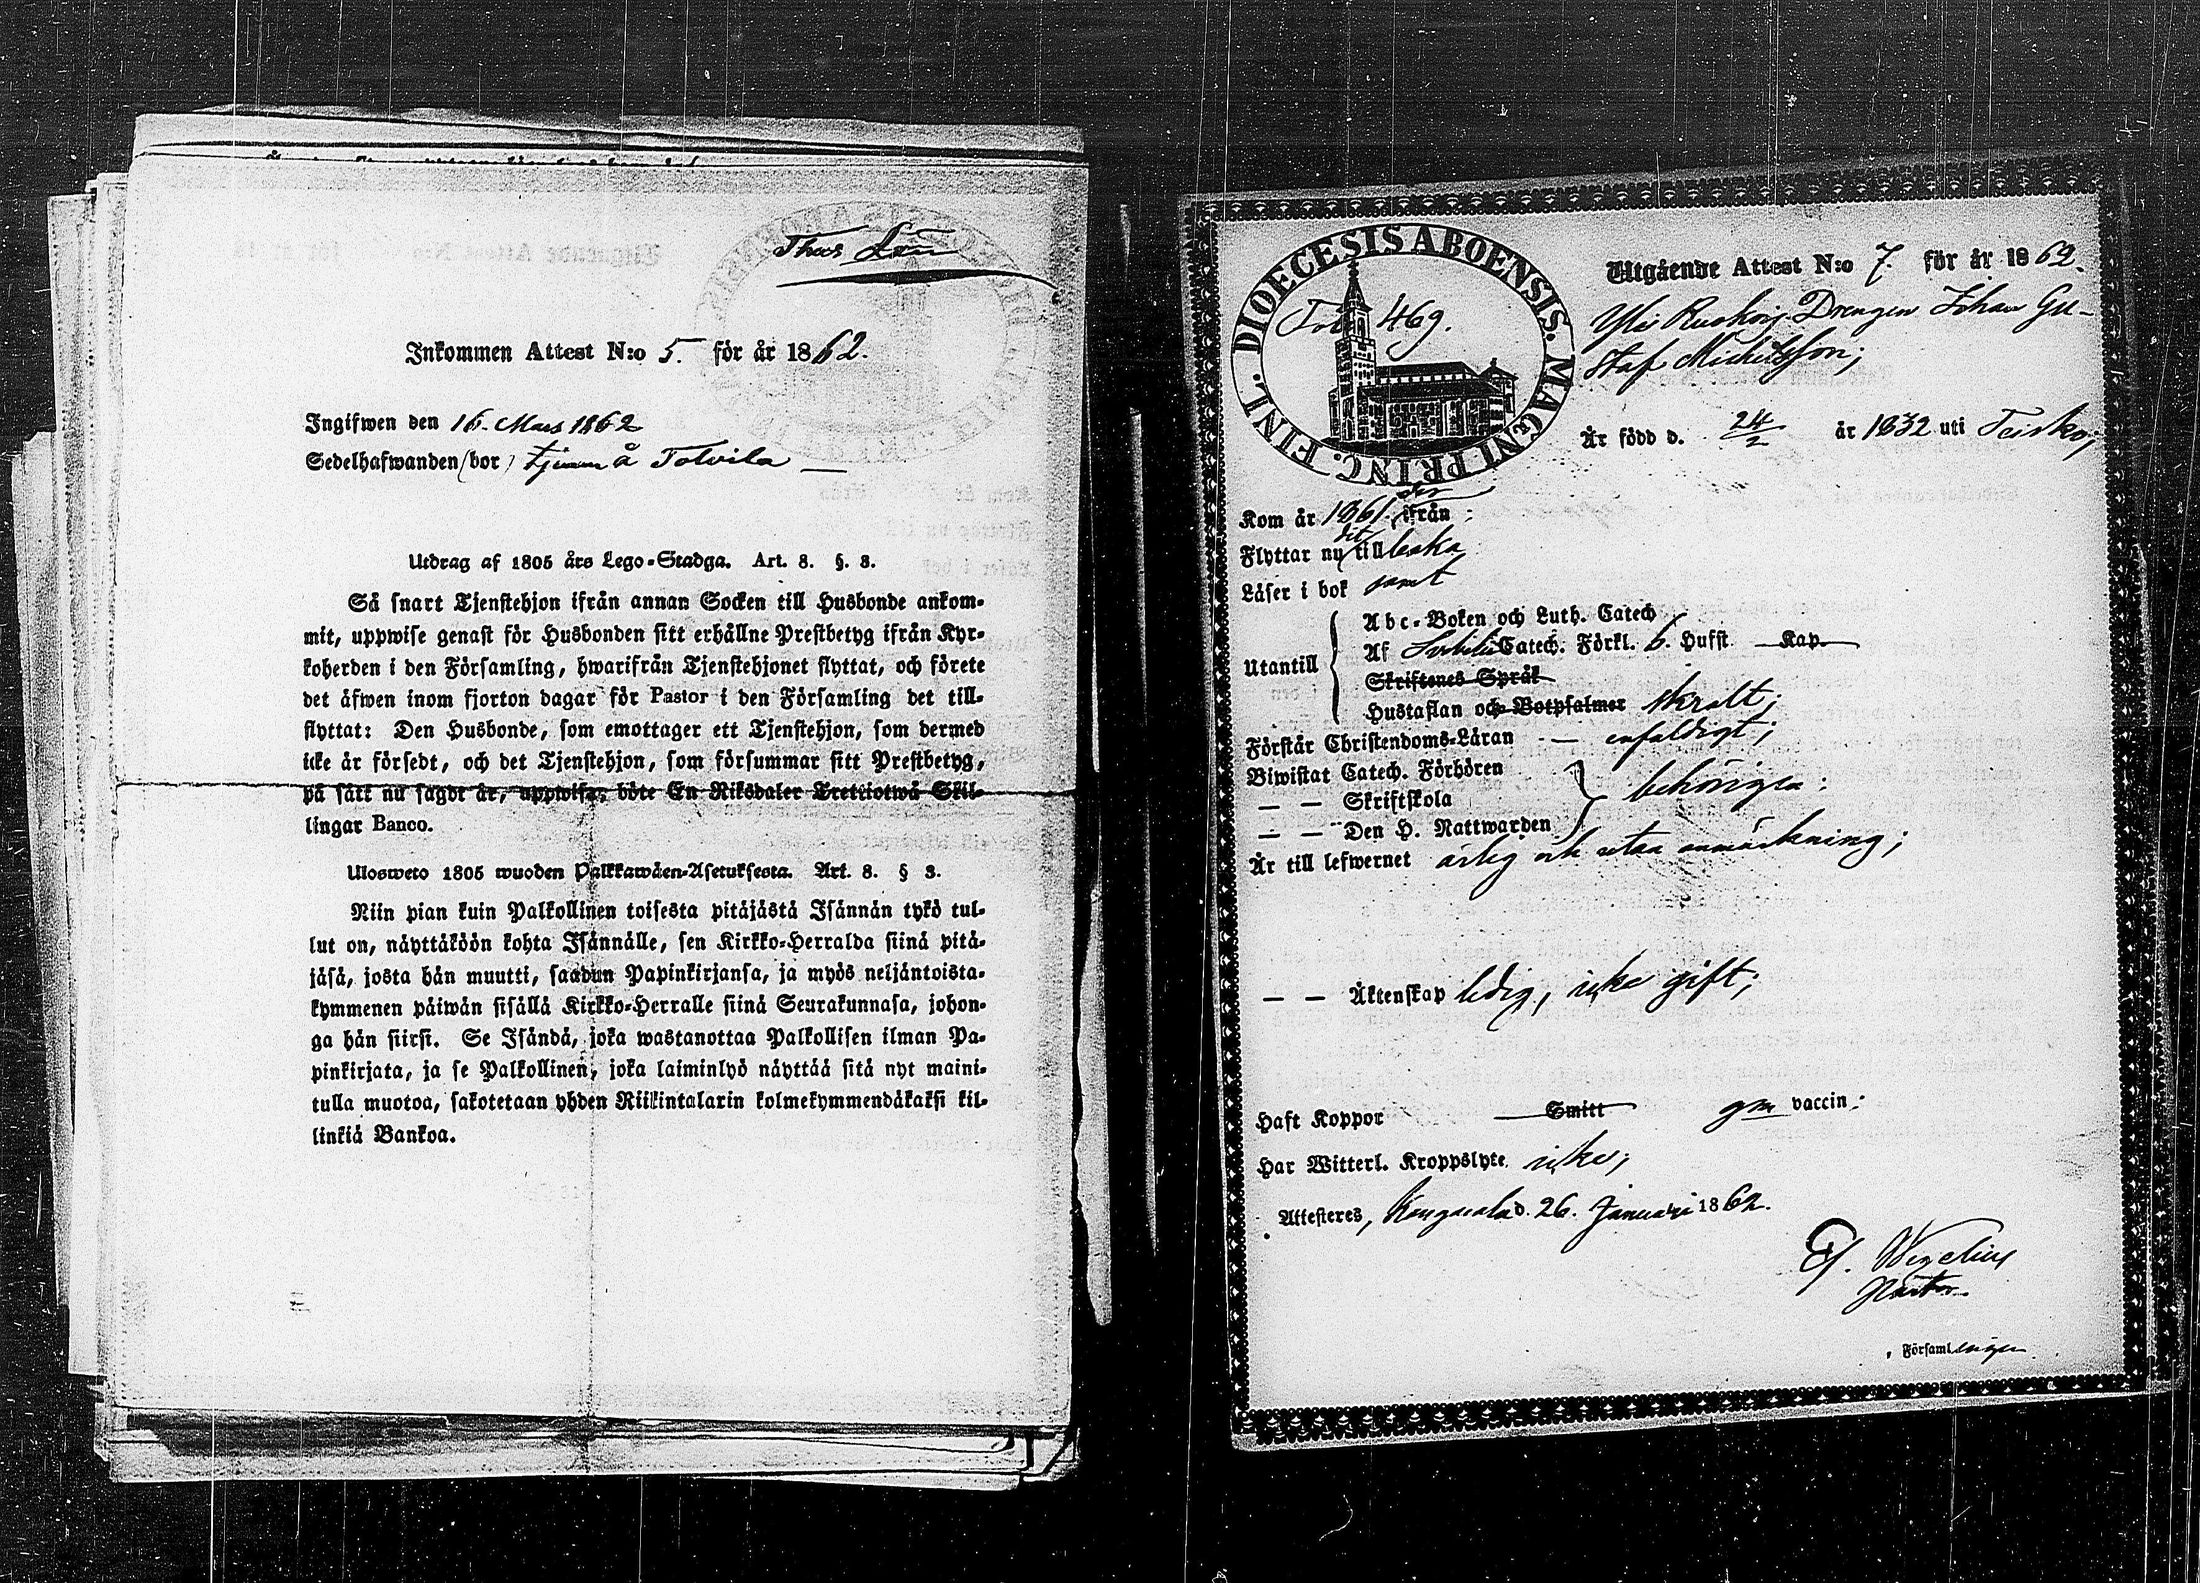 Inkommen Attest N:o 5. för år 1862.
Ingifwen den 16. Mars 1862
Sedelhafwanden (bor) tjenar å Tolvila —
Utdrag af 1805 års Lego-Stadga. Art. 8. §. 3.
Så snart Tjenstehjon ifrån annan Socken till Husbonde ankom-
mit, uppwise genast för Husbonden sitt erhållne Prestbetyg ifrån Kyr-
koherden i den Församling, hwarifrån Tjenstehjonet flyttat, och förete
det äfwen inom fjorton dagar för Pastor i den Församling det till-
flyttat: Den Husbonde, som emottager ett Tjenstehjon, som dermed
icke är försedt, och det Tjenstehjon, som försummar sitt Prestbetyg,
på sätt nu sagdt är, uppwisa, böte En Riksdaler Trettiotwå Skil-
lingar Banco.
Ulosweto 1805 wuoden Palkkawäen-Asetuksesta. Art. 8. § 3.
Niin pian kuin Palkollinen toisesta pitäjästä Isännän tykö tul-
lut on, näyttäköön kohta Isännälle, sen Kirkko-Herralda siinä pitä-
jäsä, josta hän muutti, saadun Papinkirjansa, ja myös neljäntoista-
kymmenen päiwän sisällä Kirkko-Herralle siinä Seurakunnasa, johon-
ga hän siirsi. Se Isändä, joka wastanottaa Palkollisen ilman Pa-
pinkirjata, ja se Palkollinen, joka laiminlyö näyttää sitä nyt maini-
tulla muotoa, sakotetaan yhden Riikintalarin kolmekymmendäkaksi kil-
linkiä Bankoa.
DIOECESIS ABOENSIS. MAGNI PRINC. FINL.
469.
Utgående Attest N:o 7. för år 1862.
Drengen Johan Gu-
staf Michelsson;
Är född d. 24/2 år 1832 uti Teisko;
Kom år 1861. der ifrån;
Flyttar nu dit till baka
Läser i bok samt
Utantill
Abc-Boken och Luth. Catech
Af Catech. Förkl. 6. Hufst — Kap.
Skriftenes Språk
Hustaflan och Botpsalmer skralt;
Förstår Christendoms-Läran — enfaldigt;
Biwistat Catech. Förhören
— — Skriftskola behörigen;
— — Den H. Nattwarden
Är till lefwernet ärlig och utan anmärkning;
— — Äktenskap ledig, icke gift;
Haft Koppor — Smitt gm vaccin:
Har Witterl. Kroppslyte icke;
Attesteras, Kangasala d. 26. Januari 1862.
Wegelius
Församlingen